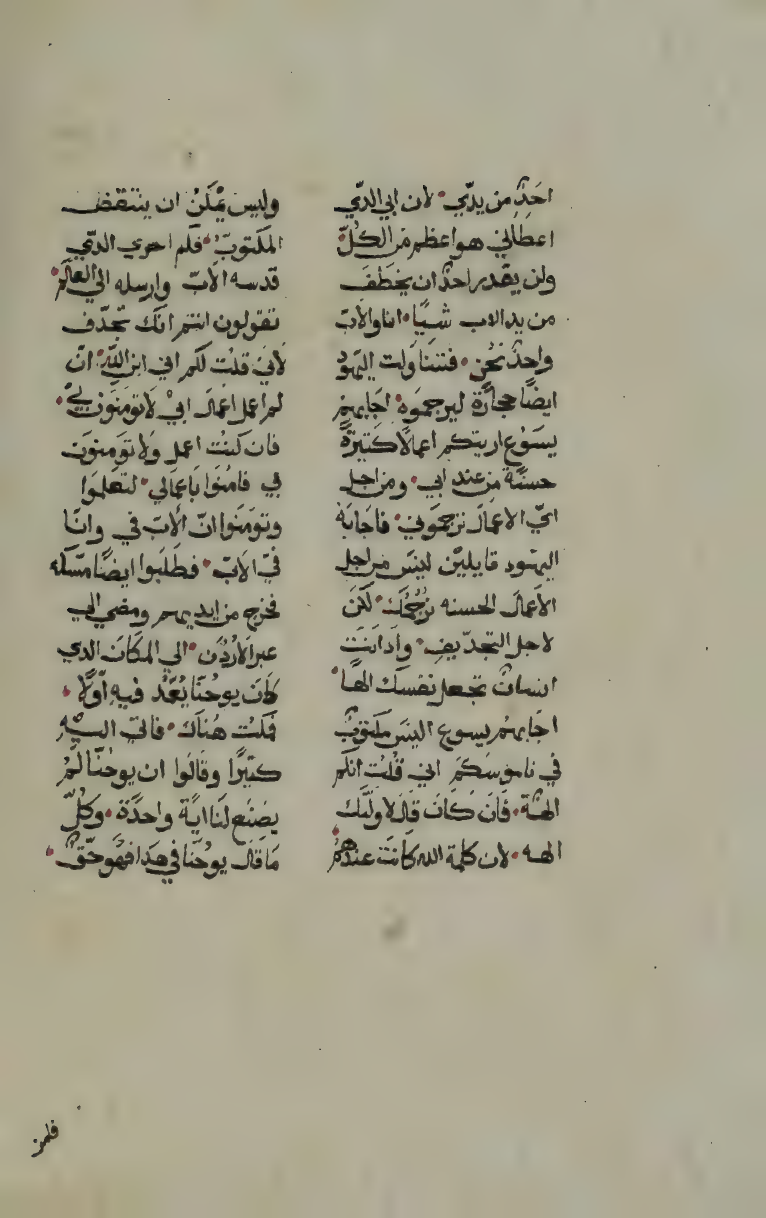 احَدٌ من يدّي • لان ابي الدّي
اعطاني هو اعظم من الكلّ •
ولن يقدر احدٌ ان يخطف
من يد الاب شيًا • انا والابّ
واحدٌ نحن • فتناولت اليهود
ايضًا حجارة ليرجموه • اجابهم
يسوع اريتكم اعمالًا كتيرةً
حسنةً من عند ابي • ومن اجل
ايّ الاعمال ترجموني • فاجابه
اليهود قايلين ليس من اجل
الأعمال الحسنه نرجمك • لكن
لاجل التجديف • واد انت
انسانٌ تجعل نفسك الهًا •
اجابهم يسوع اليس مكتوبٌ
في ناموسكم اني قلت انكم
الهة • فان كان قال لاوليك
الهه • لان كلمة الله كانت عندهم
وليس يمكن ان ينتقض
المكتوبُ • فكم احرى الدّي
قدسه الابّ وارسله الي العالم •
تقولون انتم انك تجدّف
لأني قلت لكم اني ابن الله • ان
لم اعمل اعمال ابي لا تومنون بي •
فان كنت اعمل ولا تومنون
بي فامنوا باعمالي • لتعلموا
وتومنوا انّ الاب فيّ وانا
في الابّ • فطلبوا ايضًا مسكه
فخرج من ايديهم ومضي الي
عبر الأردن • الي المكان الدي
كان يوحنّا يُعمّد فيه أولًا •
فمكث هناك • فاتي اليه
كتيرًا وقالوا ان يوحنّا لم
يصنع لنا اية واحدة • وكلّ
ما قال يوحنّا في هدا فهو حقّ •
فامن